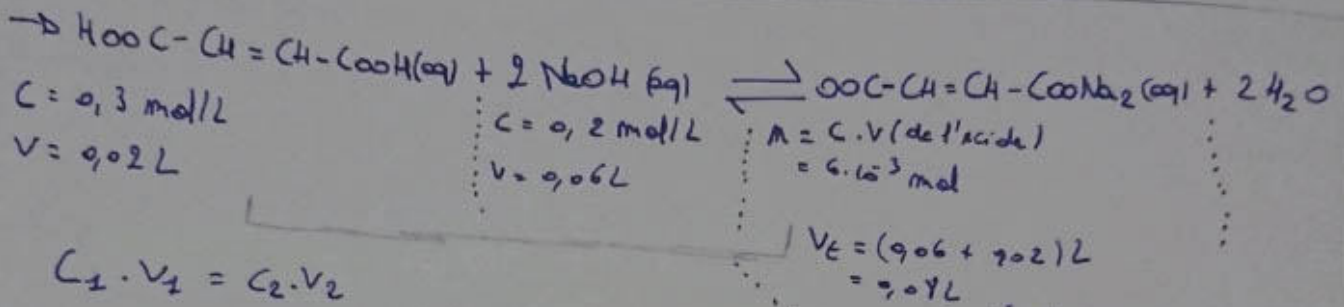 → HOOC-CH=CH-COOH(aq) + 2 NaOH (aq) ⇌ OOC-CH=CH-COONa₂ (aq) + 2 H₂O
C = 0,3 mol/L
V = 0,02 L
C = 0,2 mol/L
V = 0,06 L
n = C.V (de l'acide)
= 6.10⁻³ mol
Vt = (0,06 + 0,02) L
C₁.V₁ = C₂.V₂